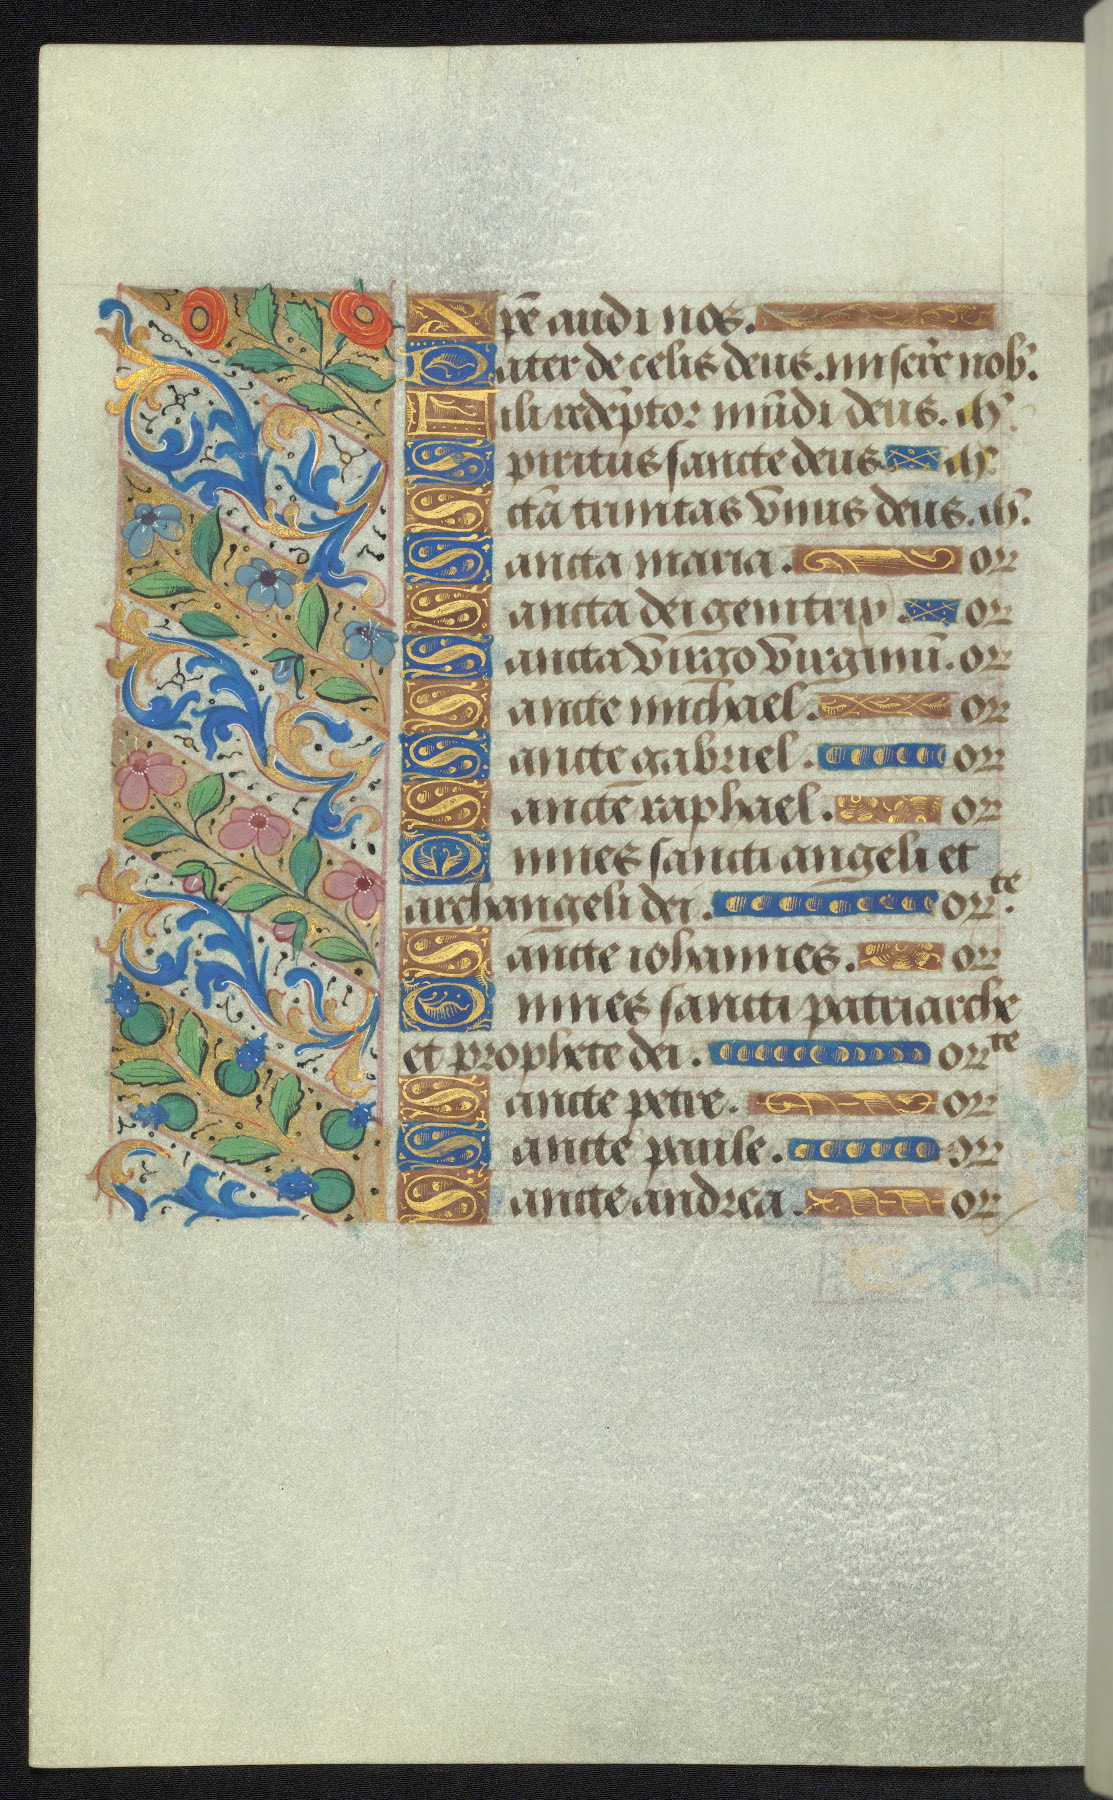 Xpē audi nos.
Pater de celis deus. miserē nob.
Fili redēptor mūdi deus. m̄
Spiritus sancte deus m̄
Sctā trinitas vnus deus. m̄.
Sancta maria. or
Sancta dei genitrix or
Sancta virgo virginū. or
Sancte michael. or
Sancte gabriel. or
Sancte raphael. or
Omnes sancti angeli et
archangeli dei. orte.
Sancte iohannes. or
Omnes sancti patriarche
et prophete dei. orte
Sancte petre. or
Sancte paule. or
Sancte andrea. or